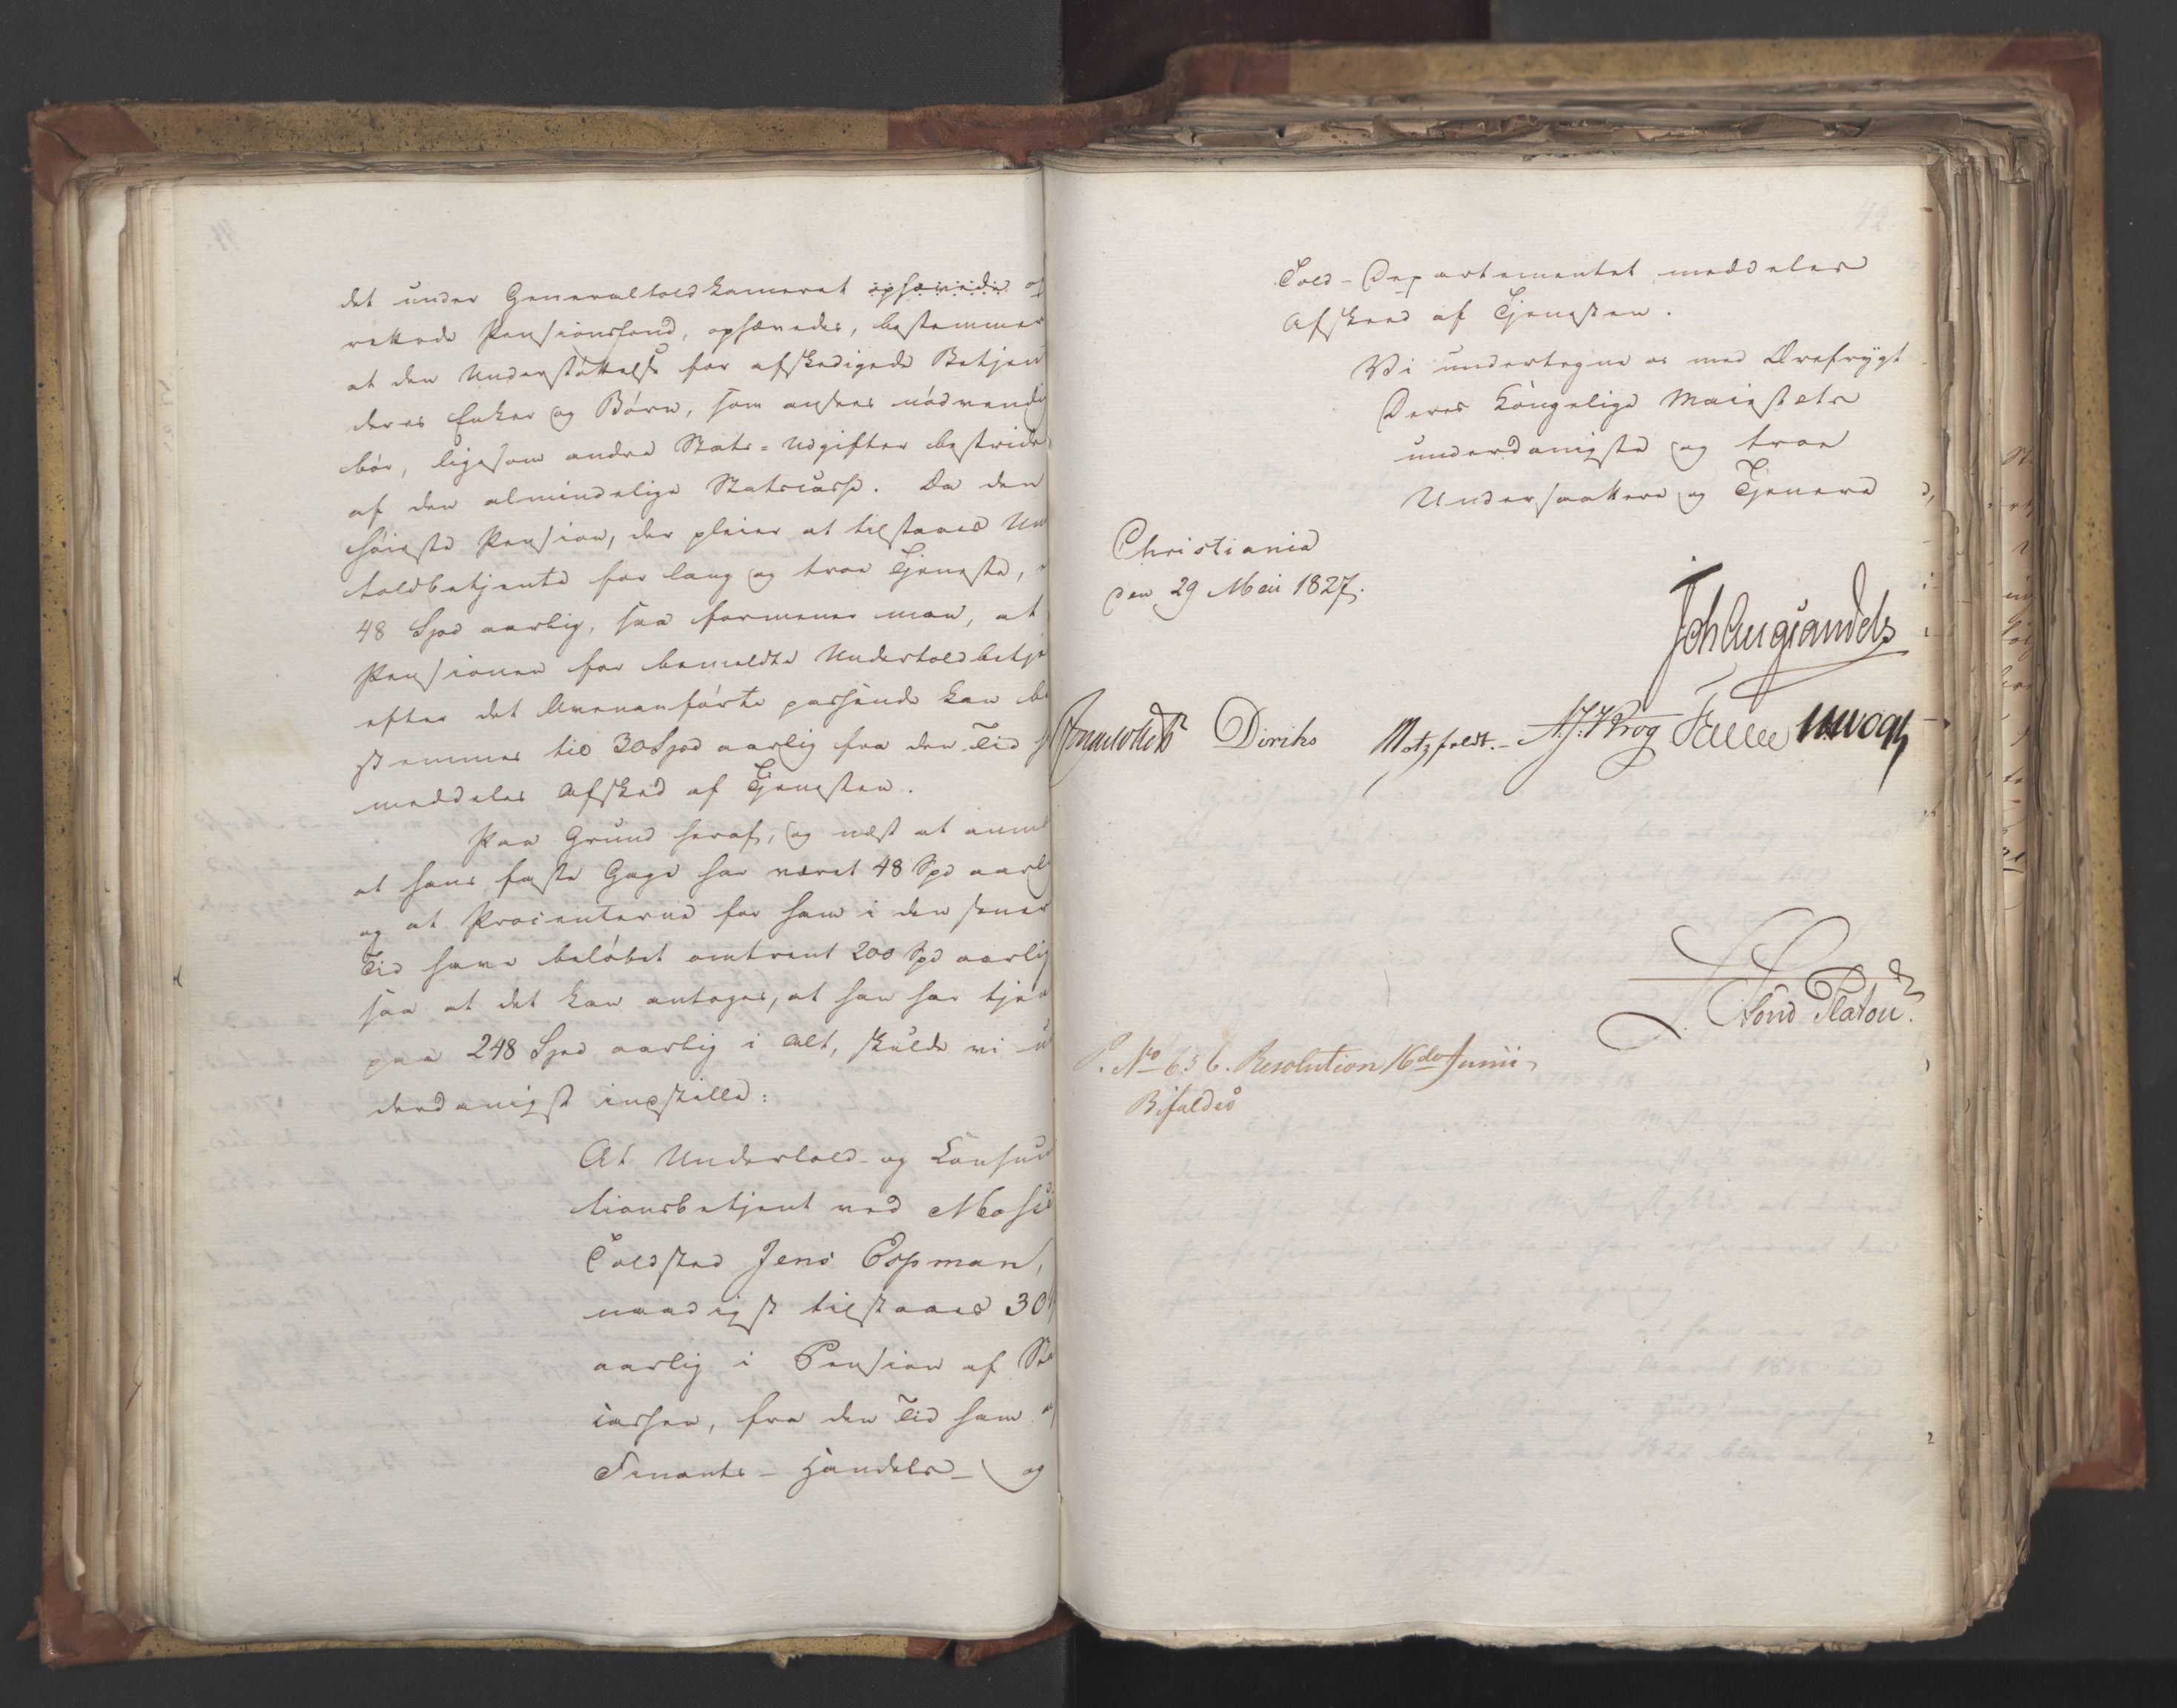 det under Generaltoldkameret ophævede op
rettede Pensionsfond, ophævedes, bestemmer
at den Understöttelse for afskedigede Betjen
deres Enker og Börn, som ansees nödvendig
bör, ligesom andre Stats-Udgifter bestrides
af den almindelige Statscasse. Da den
höieste Pension, der pleier at tilstaaes Un
toldbetjente for lang og troe Tjeneste,
48 Spd aarlig, saa formener man, at
Pensionen for bemeldte Undertoldbetje
efter det Ovenanförte passende kan be
stemmes til 30 Spd aarlig fra den Tid
meddeles Afsked af Tjenesten.
Paa Grund heraf, og næst at anm
at hans faste Gage har været 48 Spd aarl
og at Procenterne for ham i den sener
Tid have belöbet omtrent 200 Spd aarlig
saa at det kan antages, at han har tjen
paa 248 Spd aarlig i Alt, skulde vi un
derdanigst indstille:
At Undertold- og Konsum
tionsbetjent ved Mosse
Toldsted Jens Espman,
naadigst tilstaaes 30
aarlig i Pension af Sta
cassen, fra den Tid ham af
Finants- Handels- og
Told-Departementet meddeles
Afskeed af Tjenesten.
Vi undertegne os med Ærefrygt
Deres Kongelige Maiestets
underdanigste og troe
Undersaattere og Tjenere
Christiania
den 29 Mai 1827.
Joh Aug Sandels
Collett Diriks Motzfeldt. A. J. Krog Fasting Vogt
Platou.
P. No 656. Resolution 16de Junii,
Bifaldes